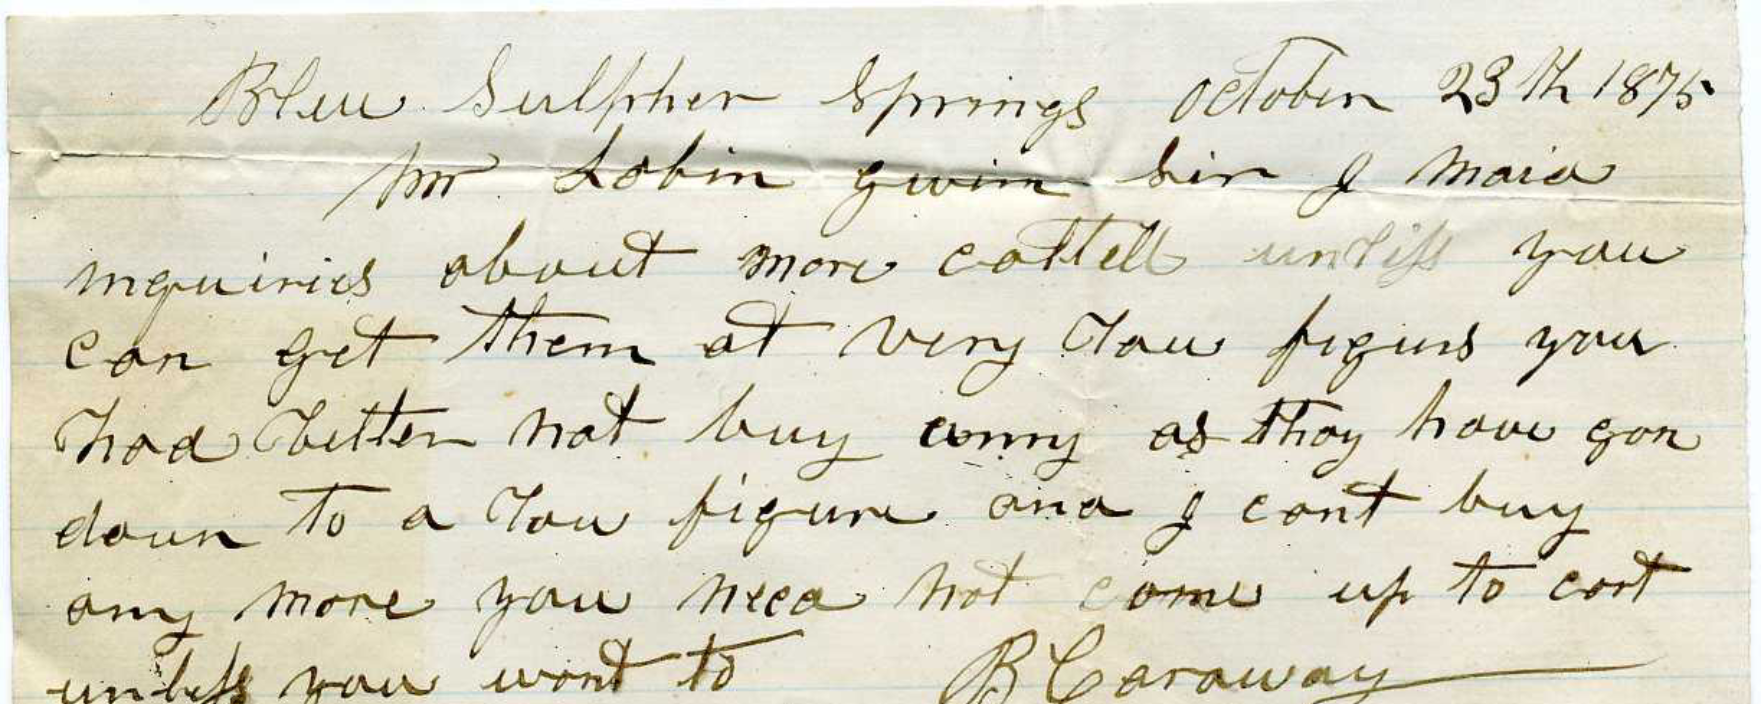 Bleu Sulpher Springs October 23th 1875
Mr Lobin gwin Sir I maid
inquiries about more cattell unless you
can get them at very low figurs you
had better not buy anny as thay have gon
down to a low figure and I cant buy
any more you need not come up to cort
unless you want to B Caraway